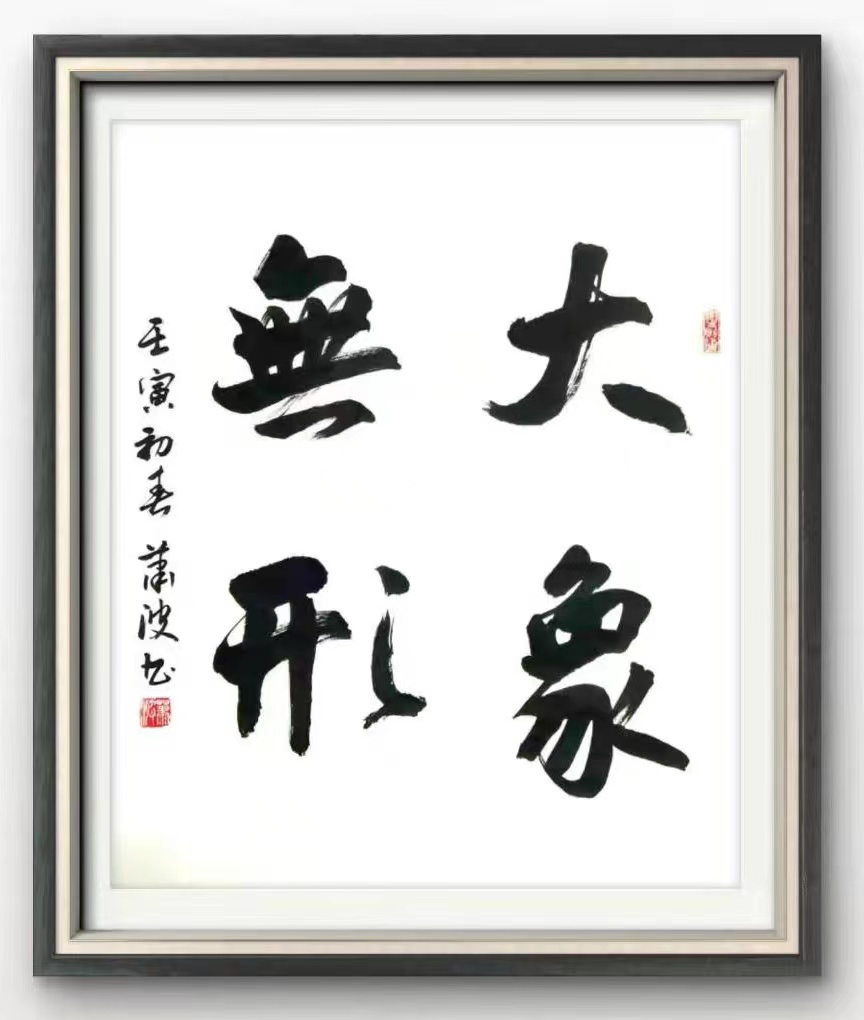 大象
無形
壬寅初春 蕭波书